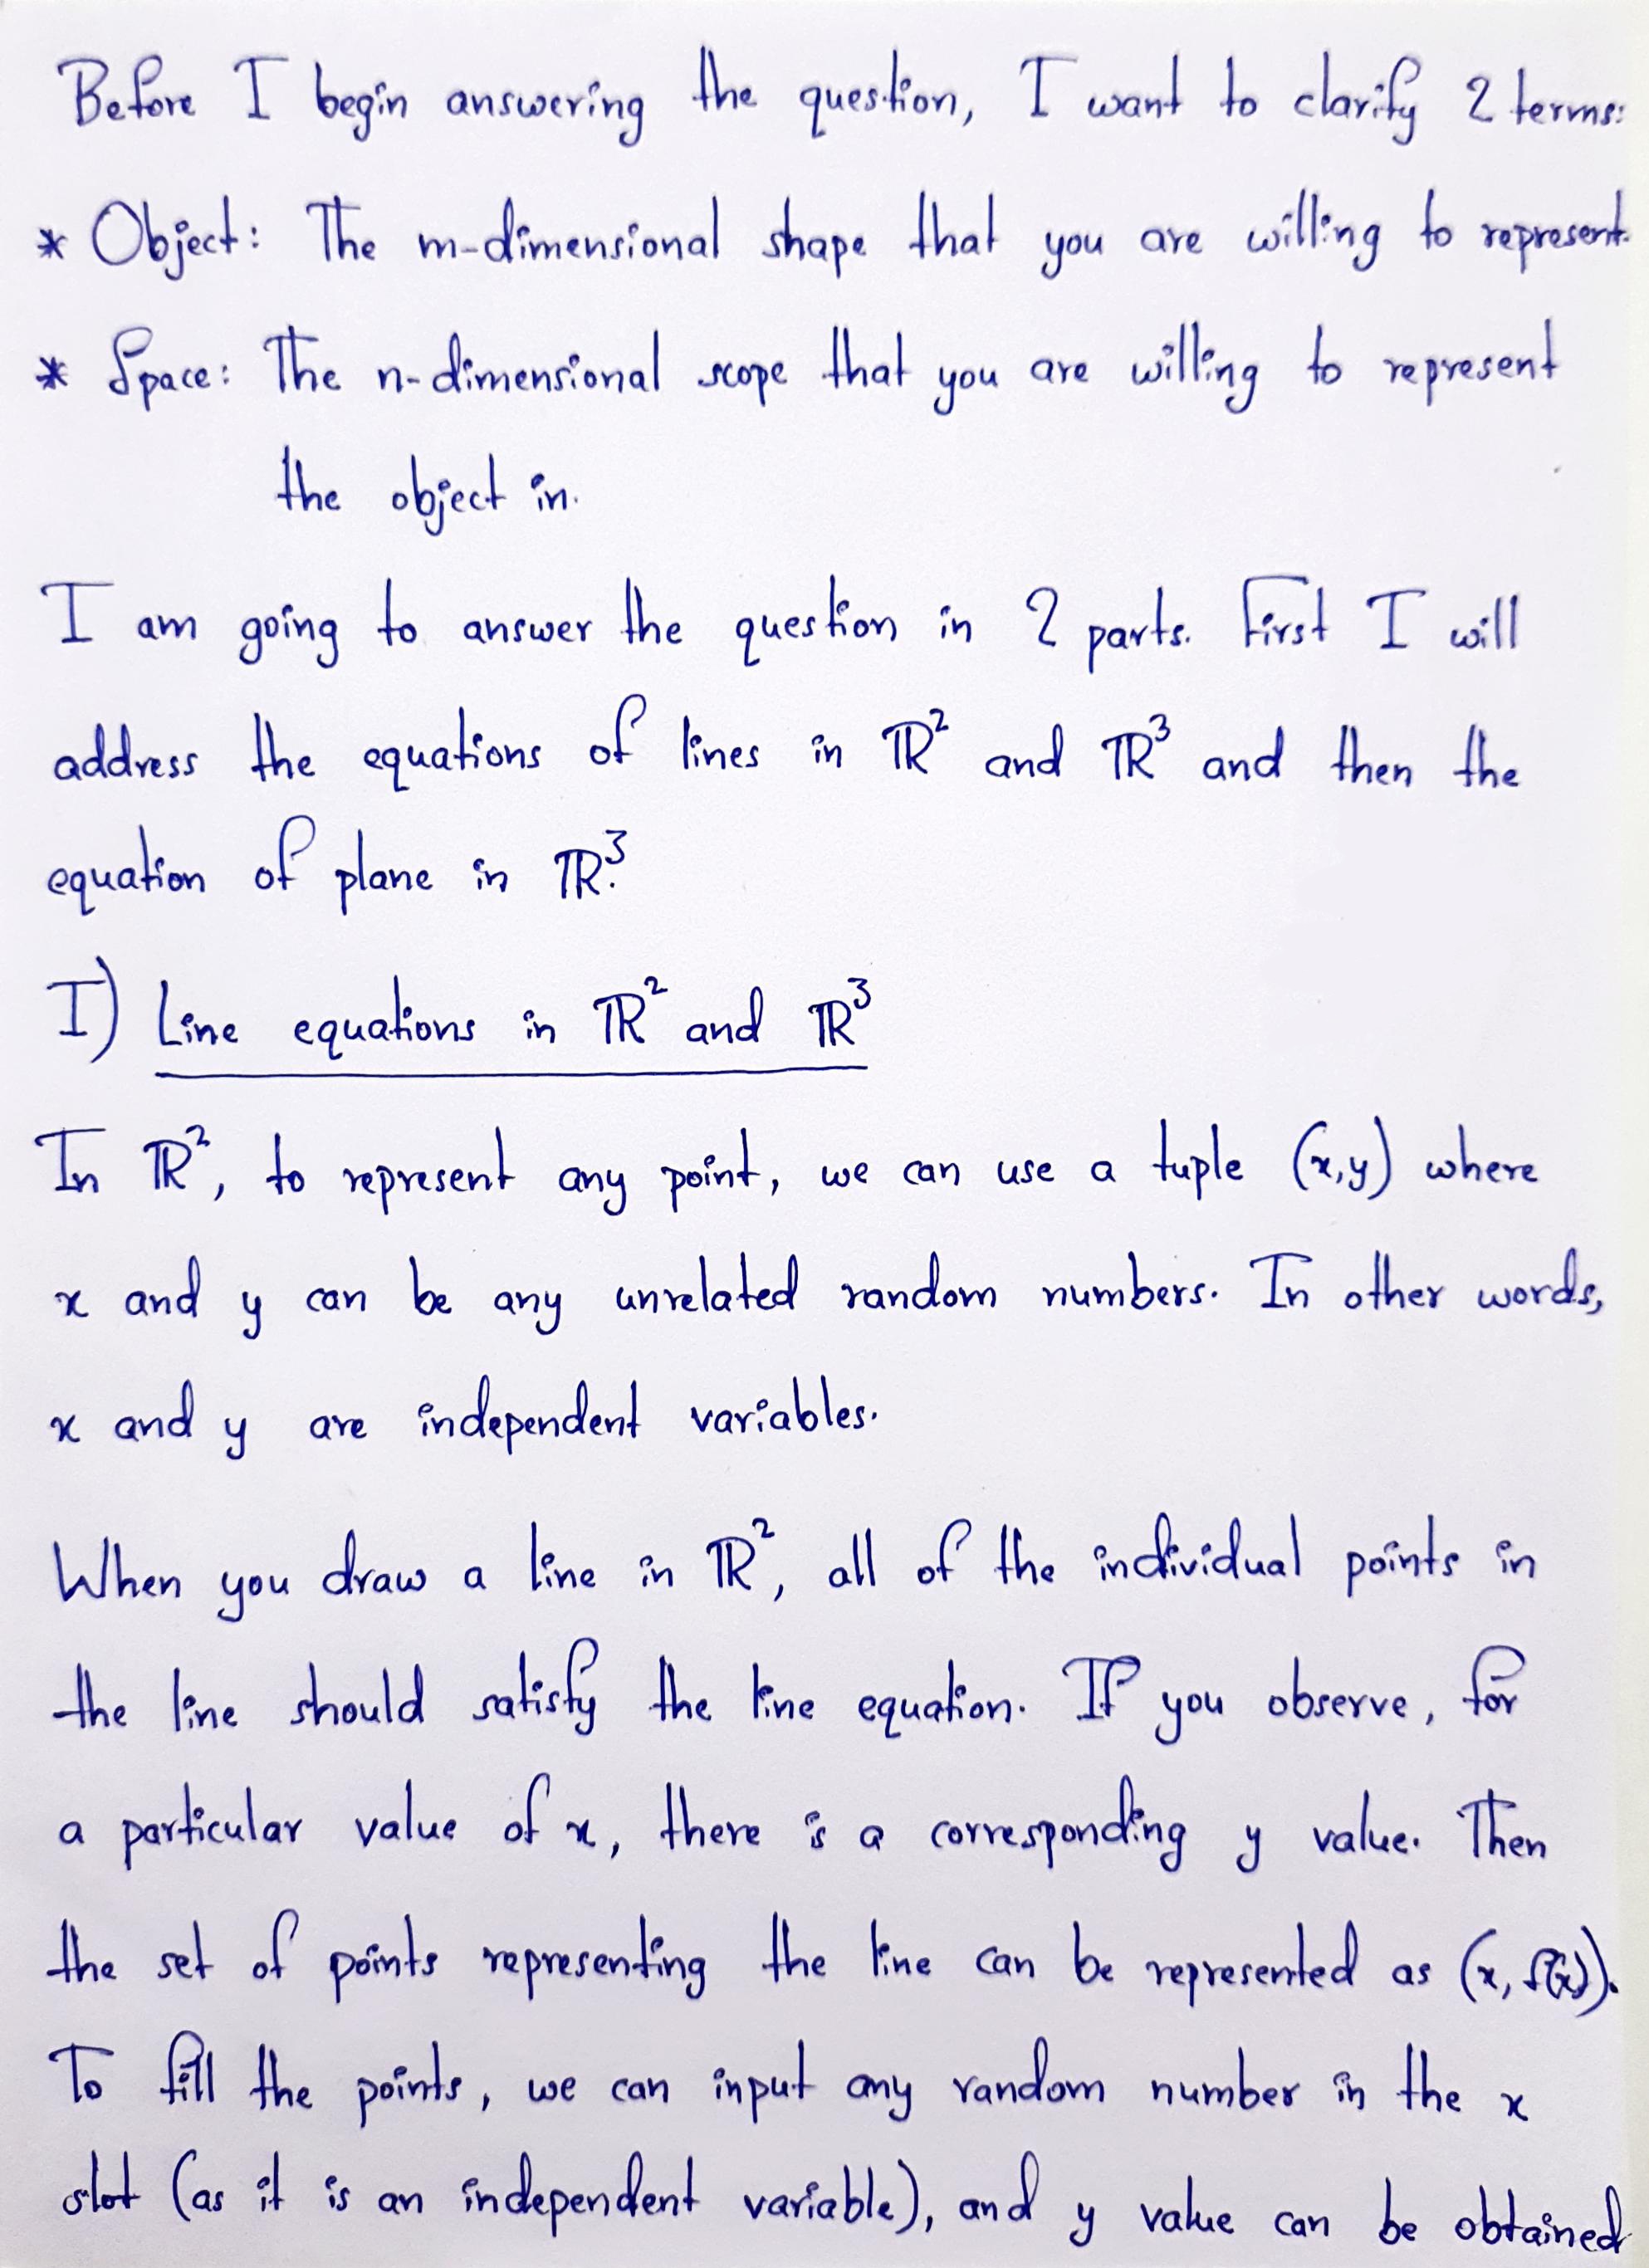 Before I begin answering the question, I want to clarify 2 terms:
* Object: The m-dimensional shape that you are willing to represent.
* Space: The n-dimensional scope that you are willing to represent
the object in.
I am going to answer the question in 2 parts. First I will
address the equations of lines in ℝ² and ℝ³ and then the
equation of plane in ℝ³.
I) Line equations in ℝ² and ℝ³
In ℝ², to represent any point, we can use a tuple (x,y) where
x and y can be any unrelated random numbers. In other words,
x and y are independent variables.
When you draw a line in ℝ², all of the individual points in
the line should satisfy the line equation. If you observe, for
a particular value of x, there is a corresponding y value. Then
the set of points representing the line can be represented as (x, f(x)).
To fill the points, we can input any random number in the x
slot (as it is an independent variable), and y value can be obtained